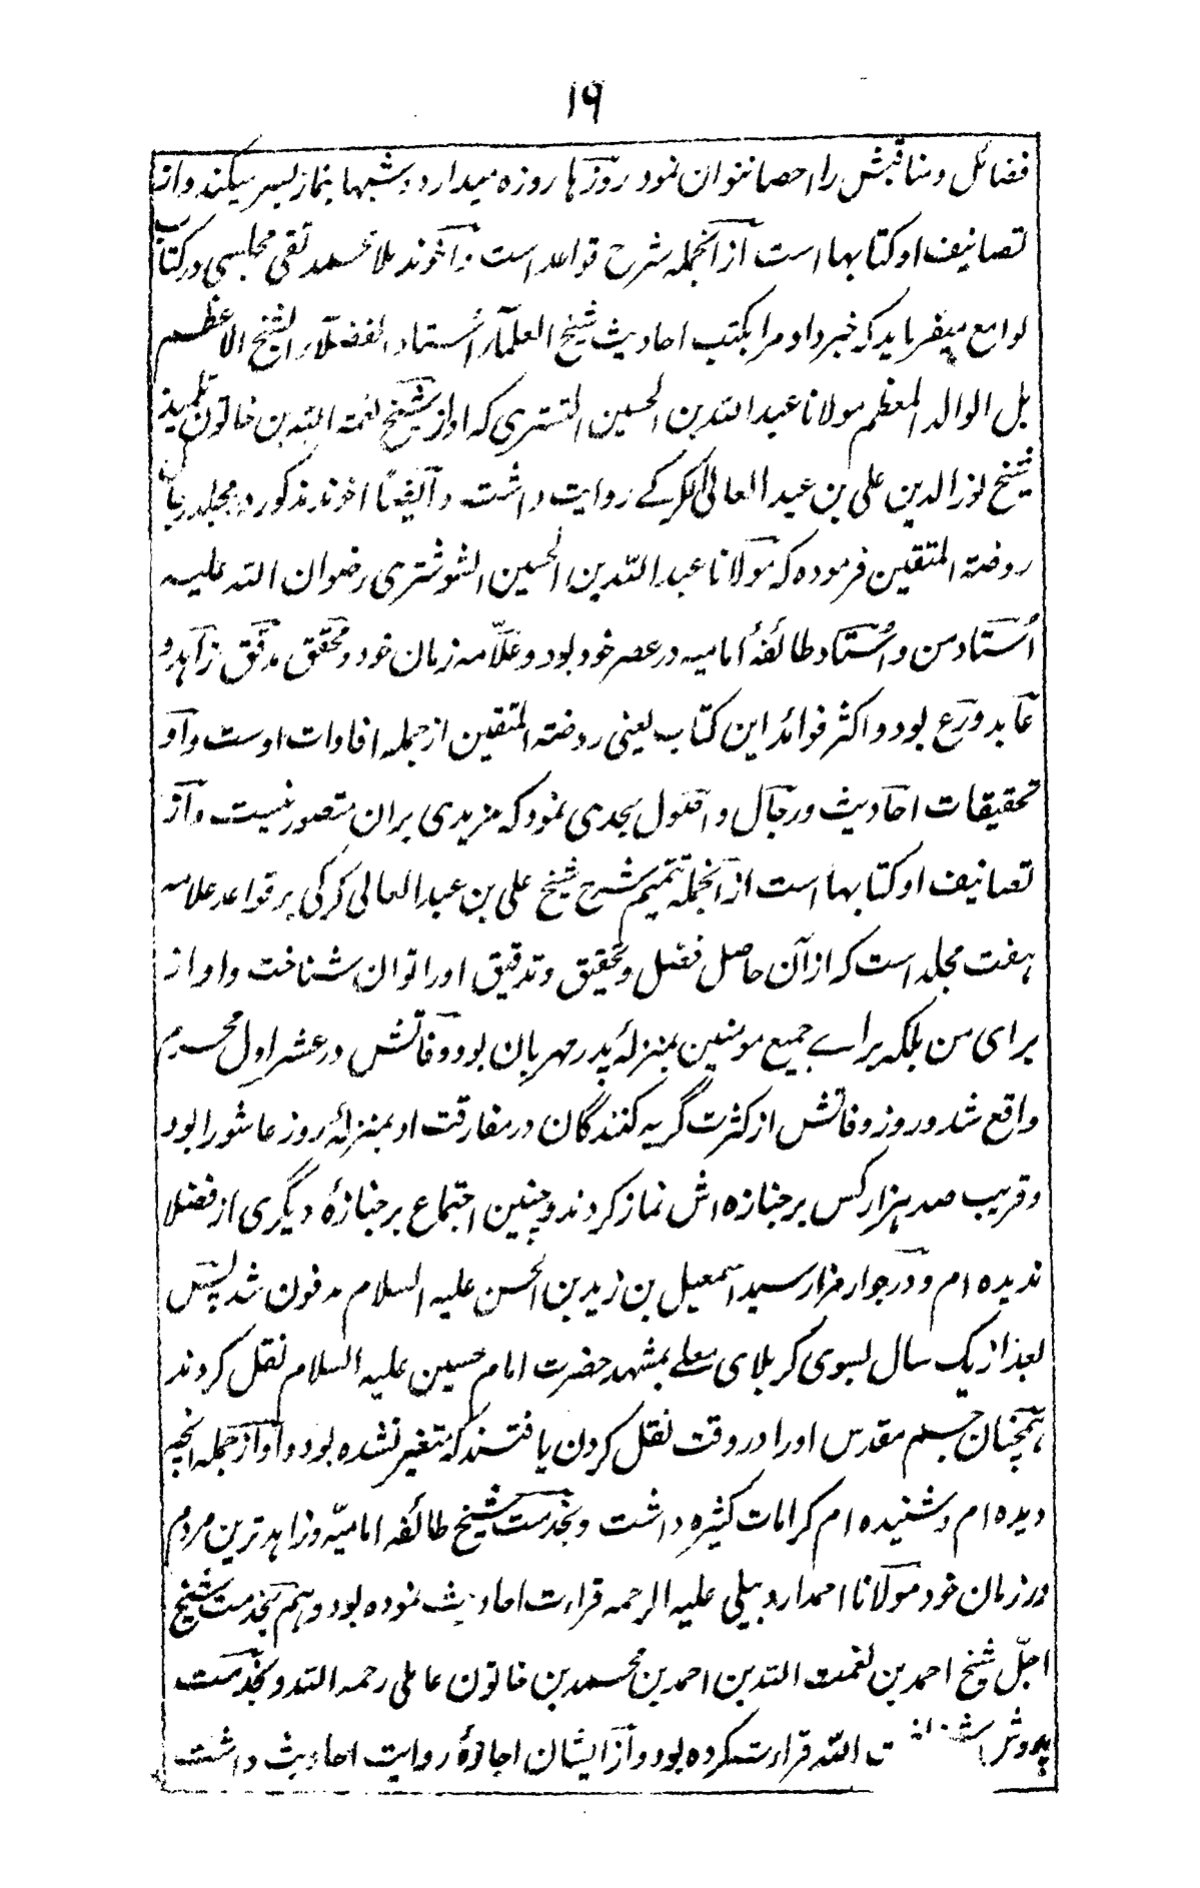 ۱۹
فضائل و مناقبش را احصا نتوان نمود روزها روزه میدارد و شبها بنماز بسر میکند و از
تصانیف او کتابها است از انجمله شرح قواعد است و آخوند ملا محمد تقی مجلسی در کتاب
لوامع میفرماید که خبر داد مرا بکتب احادیث شیخ العلماء استاد الفضلاء الشیخ الاعظم
بل الوالد المعظم مولانا عبد الله بن الحسین التستری که او از شیخ نعمة الله بن خاتون تلمیذ
شیخ نورالدین علی بن عبد العالی الکرکے روایت داشت و ایضا اخوند مذکور در مجلد رجال
روضة المتقین فرموده که مولانا عبد الله بن الحسین الشوشتری رضوان الله علیه
استاد من و استاد طائفهٔ امامیه در عصر خود بود و علّامه زمان خود و محقق مدقق زاهد و
عابد و ورع بود و اکثر فوائد این کتاب یعنی روضة المتقین از جمله افادات اوست و او
تحقیقات احادیث و رجال و اصول بحدی نمود که مزیدی بران متصور نیست و از
تصانیف او کتابها است از انجمله تتمیم شرح شیخ علی بن عبد العالی کرکی بر قواعد علامه
هفت مجلد است که از آن حاصل فضل و تحقیق و تدقیق او را توان شناخت و او از
برای من بلکه براے جمیع مومنین بمنزلهٔ پدر مهربان بود و وفاتش در عشر اول محرم
واقع شد و روز وفاتش از کثرت گریه کنندگان در مفارقت او بمنزلهٔ روز عاشورا بود
و قریب صد هزار کس بر جنازه اش نماز کردند و چنین اجتماع بر جنازهٔ دیگری از فضلا
ندیده ام و در جوار مزار سید اسمعیل بن زید بن الحسن علیه السلام مدفون شد پس
بعد از یک سال بسوی کربلای معلے بمشهد حضرت امام حسین علیه السلام نقل کردند
همچنان جسم مقدس او را در وقت نقل کردن یافتند که متغیر نشده بود و او از جمله انچه
دیده ام و شنیده ام کرامات کثیره داشت و بخدمت شیخ طائفه امامیّه و زاهد ترین مردم
در زمان خود مولانا احمد اردبیلی علیه الرحمه قراءت احادیث نموده بود و هم بخدمت شیخ
اجلّ شیخ احمد بن نعمت الله بن احمد بن محمد بن خاتون عاملی رحمه الله و بخدمت
پدرش الله قراءت کرده بود و از ایشان اجازهٔ روایت احادیث داشت